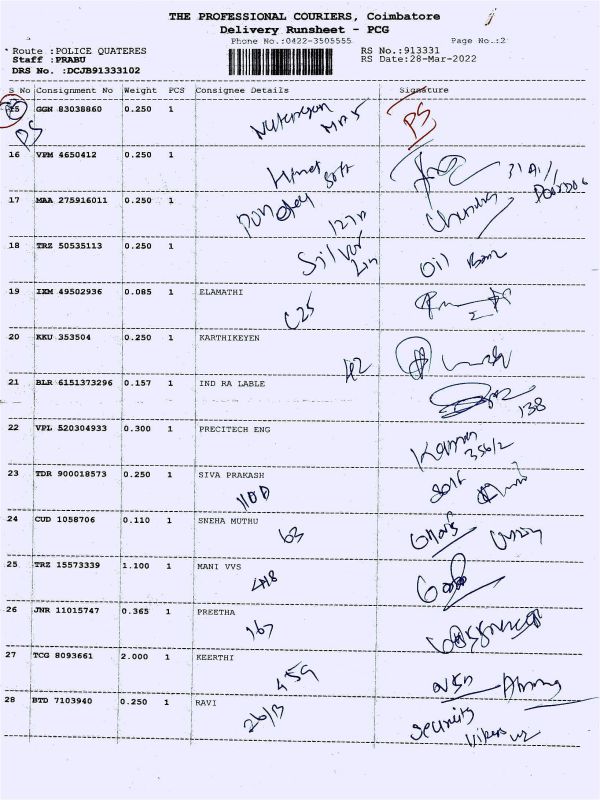 THE PROFESSIONAL COURIERS, Coimbatore
Delivery Runsheet - PCG
Phone No.:0422-3505555 Page No.:2
Route :POLICE QUATERES RS No.:913331
Staff :PRABU RS Date:28-Mar-2022
DRS No. :DCJB91333102
S No Consignment No Weight PCS Consignee Details Signature
15 GGN 83038860 0.250 1
PS PS
16 VPM 4650412 0.250 1
17 MAA 275916011 0.250 1
18 TRZ 50535113 0.250 1
Silver
Oil
19 IXM 49502936 0.085 1 ELAMATHI
C25
20 KKU 353504 0.250 1 KARTHIKEYEN
H2
21 BLR 6151373296 0.157 1 IND RA LABLE
138
22 VPL 520304933 0.300 1 PRECITECH ENG
356/2
23 TDR 900018573 0.250 1 SIVA PRAKASH
24 CUD 1058706 0.110 1 SNEHA MUTHU
63
25 TRZ 15573339 1.100 1 MANI VVS
26 JNR 11015747 0.365 1 PREETHA
167
27 TCG 8093661 2.000 1 KEERTHI
459
28 BTD 7103940 0.250 1 RAVI
26/3 Security